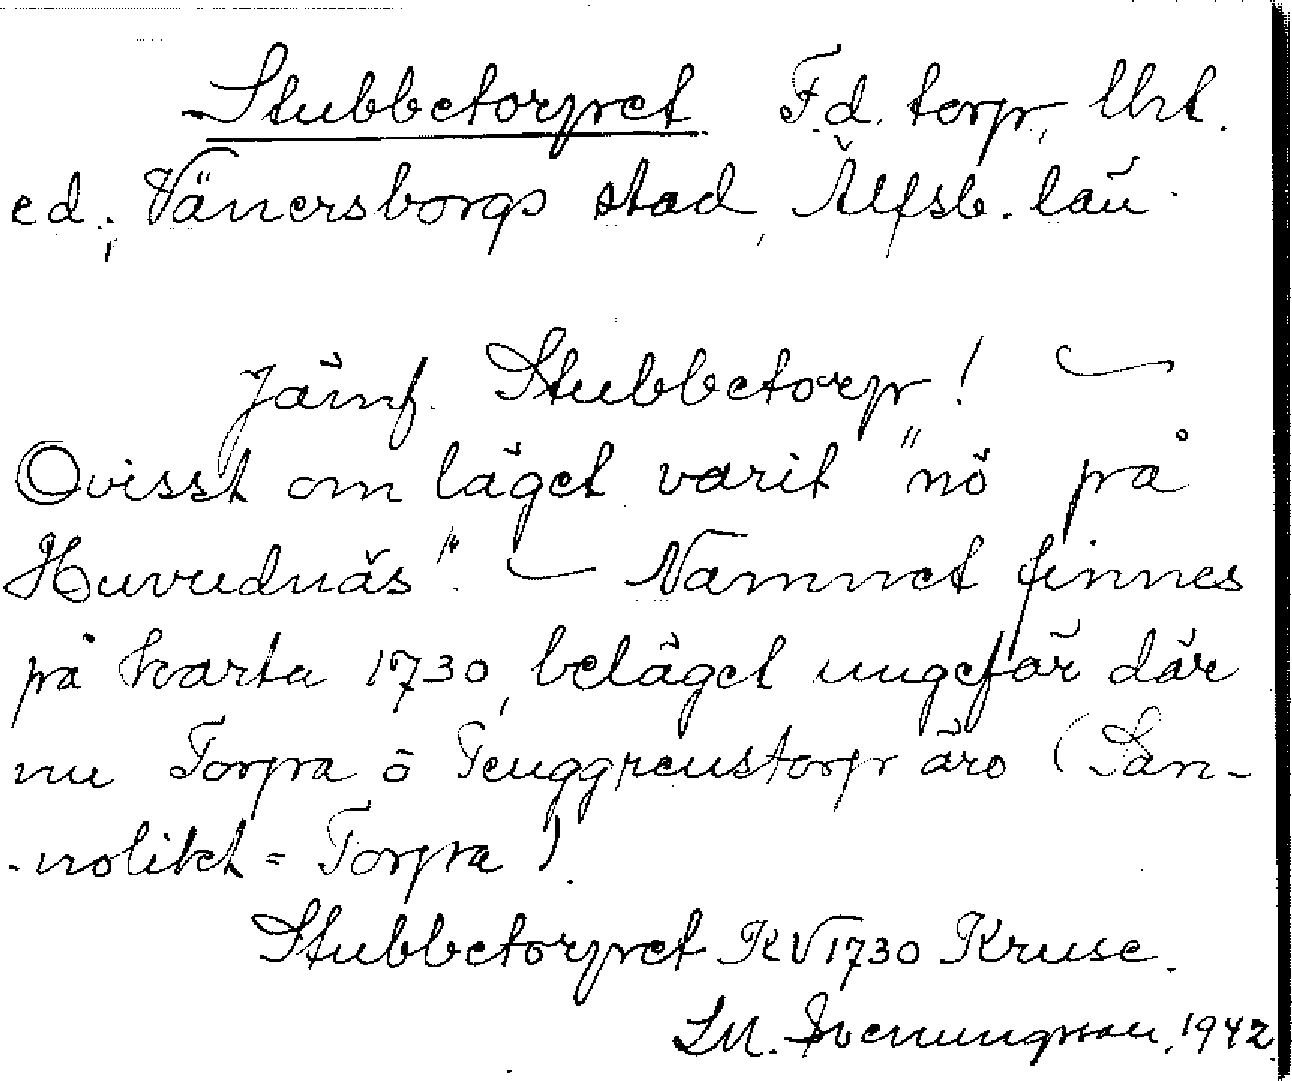 Stubbetorpet Fd. torp, Urt.
ed., Vänersborgs stad, Älfsb. län.
Jämf. Stubbetorp! —
Ovisst om läget varit "nö på
Huvudnäs". — Namnet finnes
på karta 1730, beläget ungefär där
nu Torpa o Tenggrenstorp äro (San-
-nolikt = Torpa).
Stubbetorpet KV 1730 Kruse.
1942